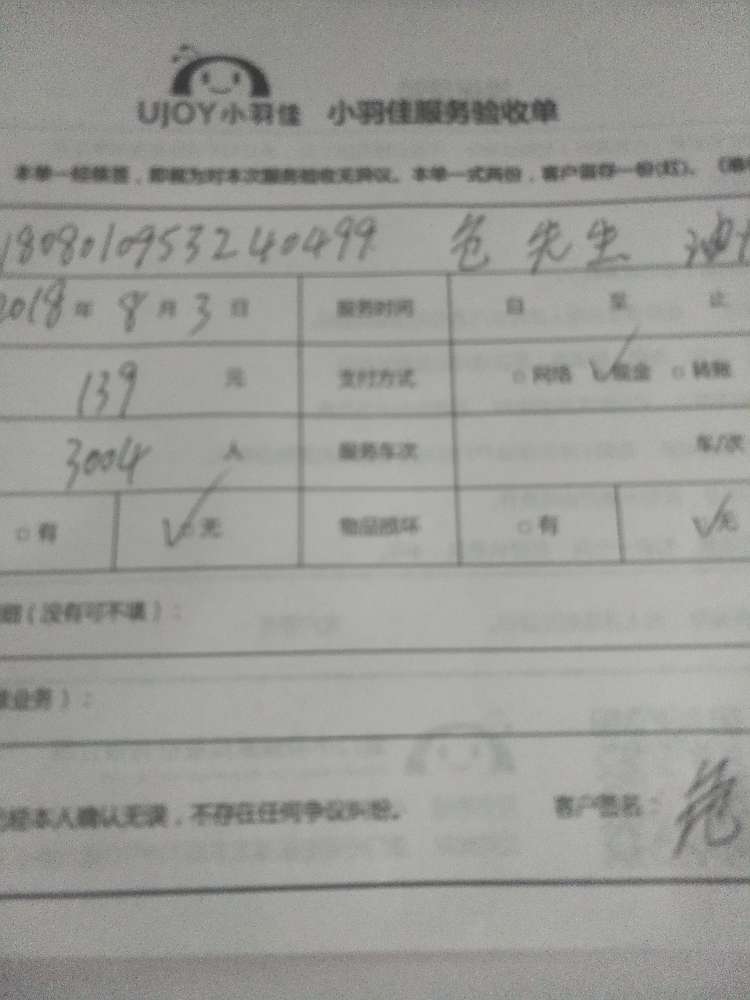 UJOY小羽佳 小羽佳服务验收单
本单一经签署，即视为对本次服务验收无异议。本单一式两份，客户留存一份(红)。
18080109532 40499 危先生 油
2018年 8月 3日 服务时间 自 至 止
139 元 支付方式 □网络 ✓现金 □转账
3004 人 服务车次 车/次
□有 ✓无 物品损坏 □有 ✓无
（没有可不填）：
业务）：
经本人确认无误，不存在任何争议纠纷。 客户签名：危